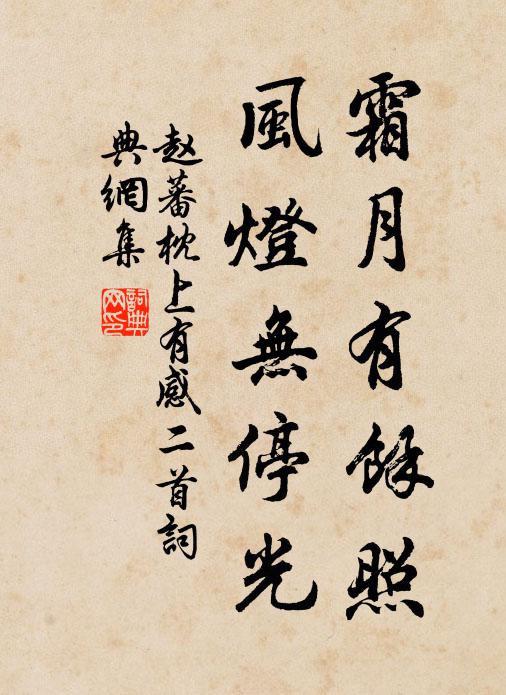 霜月有餘照
風燈無停光
赵蕃枕上有感二首詞
典網集
詞典网印